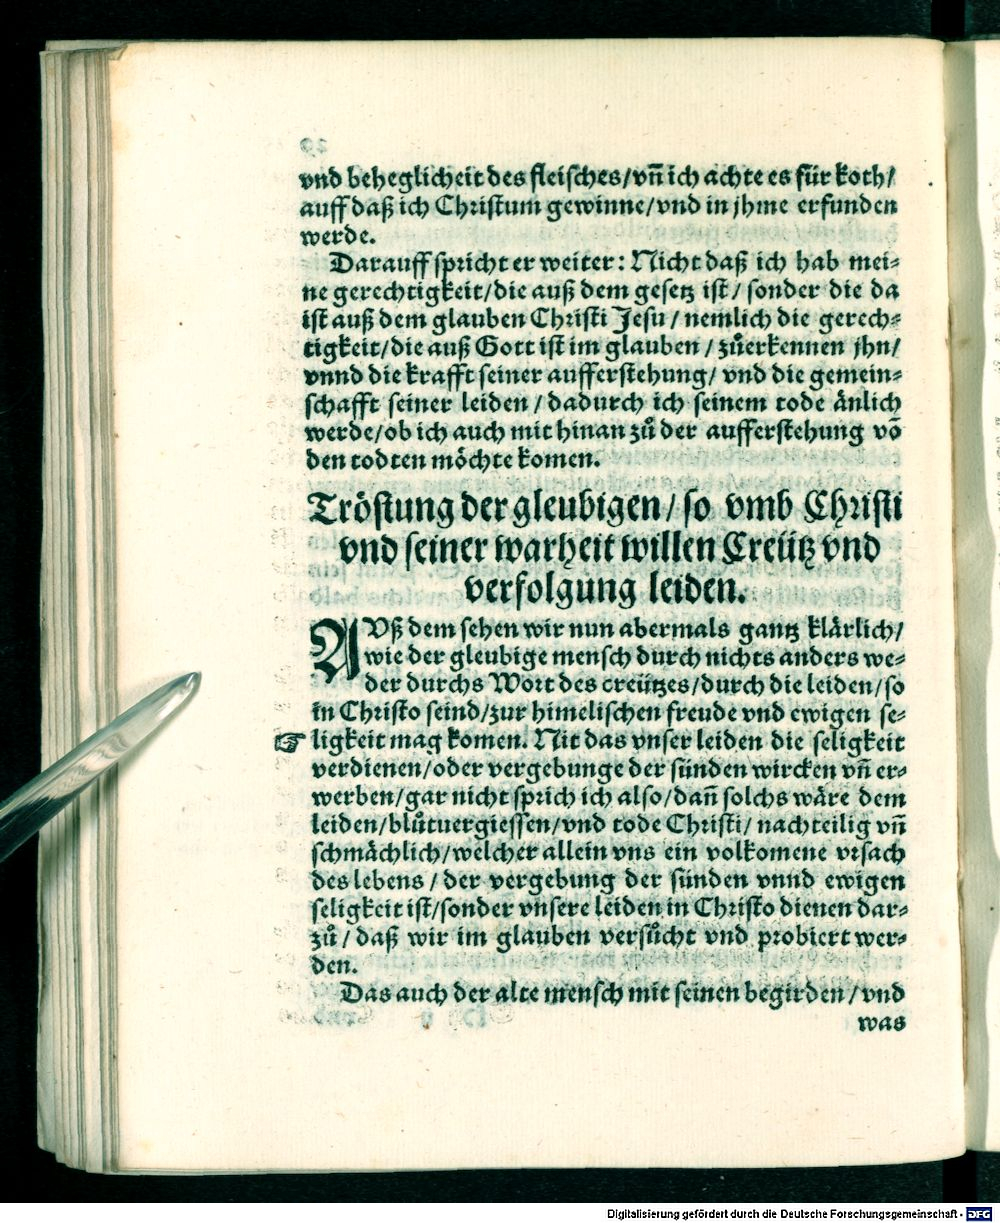 vnd beheglicheit des fleisches/vn̄ ich achte es für koth/
auff daß ich Christum gewinne/vnd in jhme erfunden
werde.
Darauff spricht er weiter: Nicht daß ich hab mei-
ne gerechtigkeit/die auß dem gesetz ist/ sonder die da
ist auß dem glauben Christi Jesu/nemlich die gerech-
tigkeit/die auß Gott ist im glauben/zůerkennen jhn/
vnnd die krafft seiner aufferstehung/ vnd die gemein-
schafft seiner leiden/dadurch ich seinem tode änlich
werde/ob ich auch mit hinan zů der aufferstehung vō
den todten möchte komen.
Tröstung der gleubigen/so vmb Christi
vnd seiner warheit willen Creütz vnd
verfolgung leiden.
AVß dem sehen wir nun abermals gantz klärlich/
wie der gleubige mensch durch nichts anders we-
der durchs Wort des creützes/durch die leiden/so
in Christo seind/zur himelischen freude vnd ewigen se-
☞ ligkeit mag komen. Nit das vnser leiden die seligkeit
verdienen/oder vergebunge der sünden wircken vn̄ er-
werben/gar nicht sprich ich also/dan̄ solchs wäre dem
leiden/blůtuergiessen/vnd tode Christi/nachteilig vn̄
schmächlich/welcher allein vns ein volkomene vrsach
des lebens/der vergebung der sünden vnnd ewigen
seligkeit ist/sonder vnsere leiden in Christo dienen dar-
zů/daß wir im glauben versůcht vnd probiert wer-
den.
Das auch der alte mensch mit seinen begirden/vnd
was
Digitalisierung gefördert durch die Deutsche Forschungsgemeinschaft - DFG